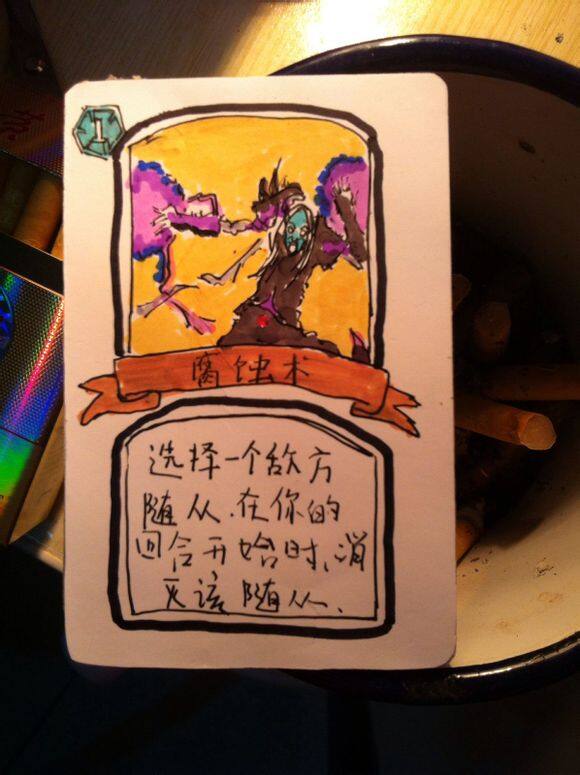 1
腐蚀术
选择一个敌方
随从.在你的
回合开始时、消
灭该随从.